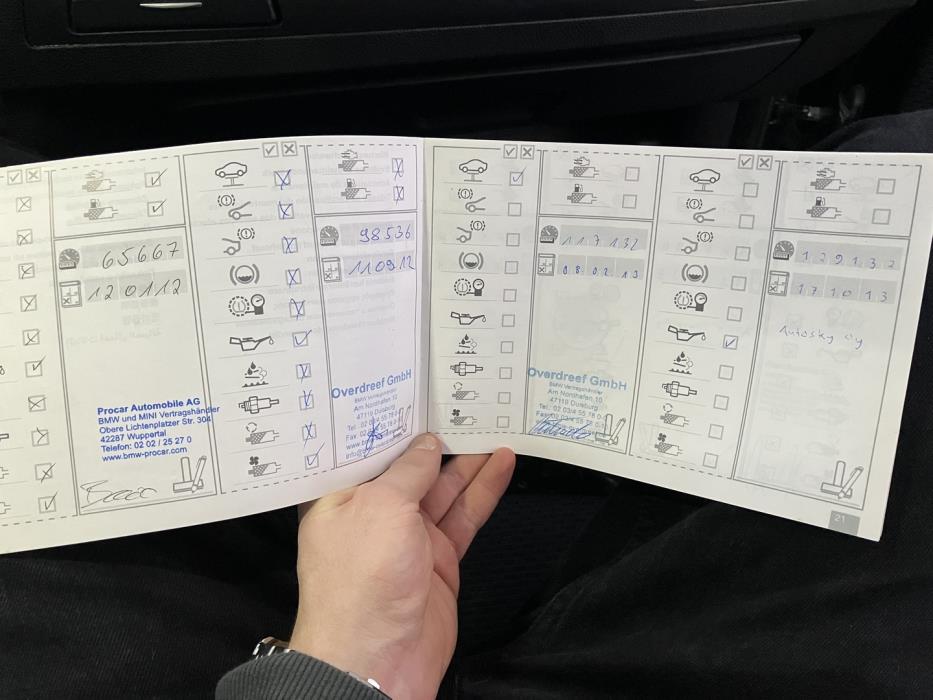 65667
120112
Procar Automobile AG
BMW und MINI Vertragshändler
Obere Lichtenplatzer Str. 304
42287 Wuppertal
Telefon: 02 02 / 25 27 0
www.bmw-procar.com
98536
110912
Overdreef GmbH
BMW Vertragshändler
Am Nordhafen 10
47119 Duisburg
Tel.: 02 03/4 55 78 0
Fax
117132
080213
Overdreef GmbH
BMW Vertragshändler
Am Nordhafen 10
47119 Duisburg
Tel.: 02 03/4 55 78 0
Fax
129132
171013
Autosky Oy
21